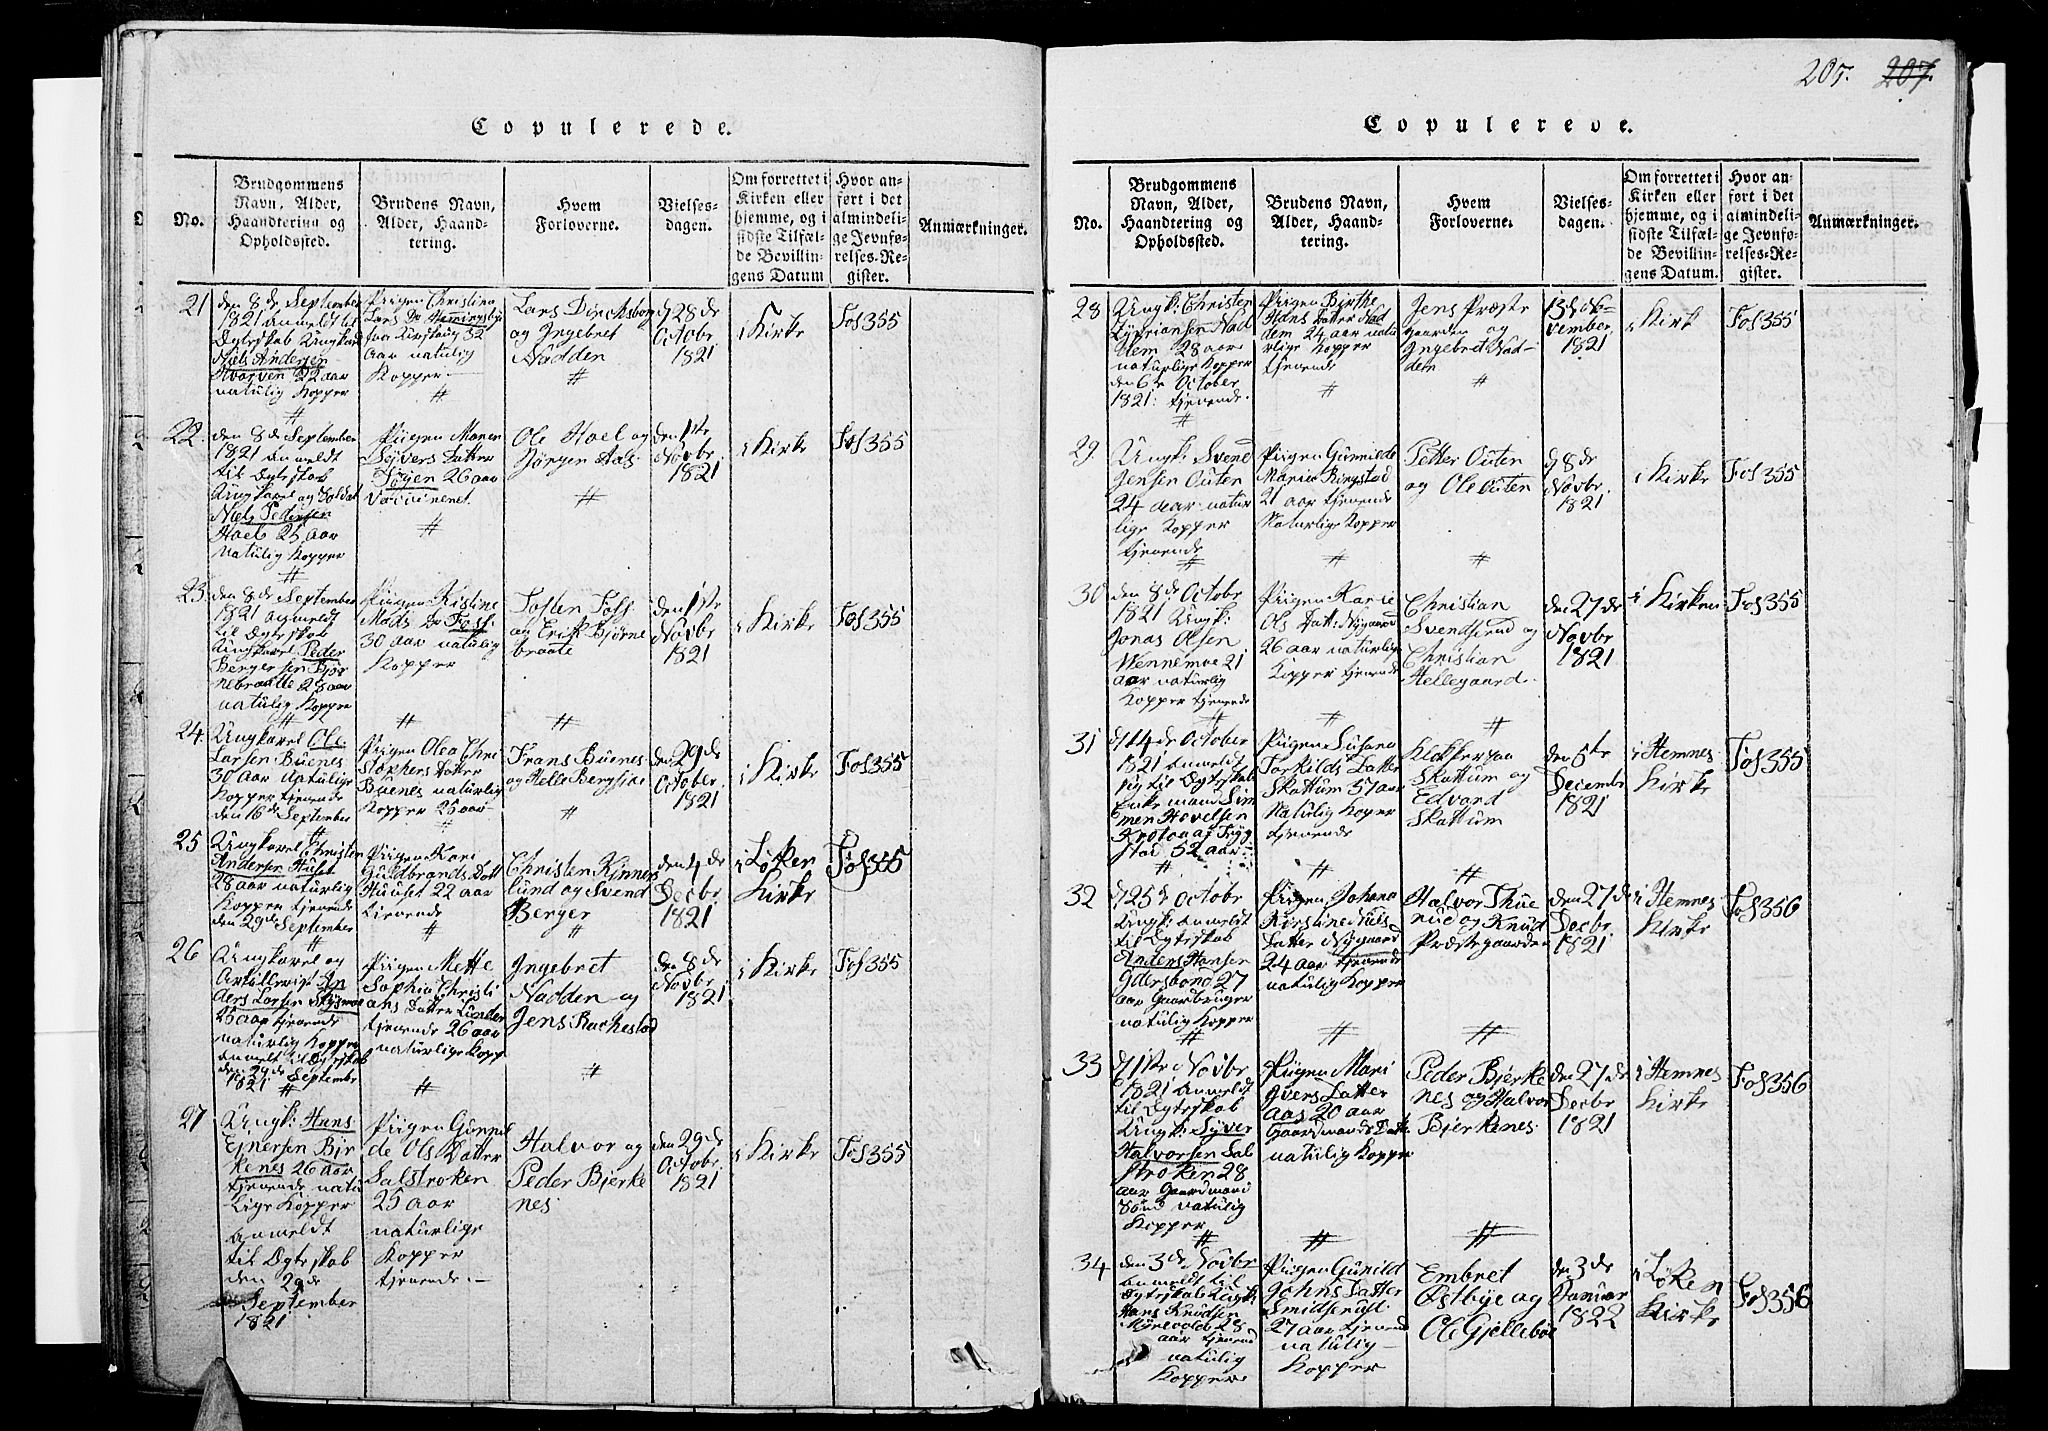 205. 207.
Copulerede.
No.
Brudgommens
Navn, Alder,
Haandtering og
Opholdssted.
Brudens Navn,
Alder, Haand-
tering.
Hvem
Forloverne.
Vielses-
dagen.
Om forrettet i
Kirken eller
hjemme, og i
sidste Tilfæl-
de Bevillin-
gens Datum
Hvor an-
ført i det
almindeli-
ge Jevnfø-
relses-Re-
gister.
Anmærkninger.
21
den 8de September
1821 anmeldt til
Ungkarl
Niels Andersen
22 aar
natulig Kopper
Pigen Christina
Lars
32
Aar natulig
Kopper
Lars
og Ingebret
Nadden
d 28de
Octobr
1821
i Kirke
Fol 355
22.
den 8de September
1821 Anmeldt
til Dgtrskab
Ungkarl og Soldat
Niels Pedersen
Hoel 25 Aar
natulig Kopper
Pigen Maren
Syvers Datter
26 aar
Vaccineret
Ole Hoel og
Jørgen Aas
den 1ste
Novbr
1821
i Kirke
Fol 355
23
den 8de September
1821 anmeldt
til Dgtrskab
Ungkarl Peder
Bergersen Bjør
nebraatte 28 aar
natulig Kopper
Pigen Kistine
Mads Dr Foss
30 aar natulig
Kopper
Tosten Foss
og Erik Bjørne
braate
den 1ste
Novbr
1821
i Kirke
Fol 355
24
Ungkarl Ole
Larsen Buenes
30 Aar natulige
Kopper tjenende
den 16de September
Pigen Olea Chri
stophers Datter
Buenes naturlig
Kopper 25 aar
Frans Buenes
og Helle
den 29de
October
1821
i Kirke
Fol 355
25
Ungkarl Christen
Andersen Huset
28 aar naturlig
Kopper tjenende
den 29de September
Pigen Kari
Guldbrands Datt
Huuset 22 aar
tjenende
Christen Kinner
lund og Svend
Berger
den 4de
Decbr
1821
i Løken
Kirke
Fol 355
26
Ungkarl og
Artillerist An
ders Larsen
25 aar tjenende
naturlig Kopper
Anmelt til Dgtrskab
den 29de Septembr
1821
Pigen Mette
Sophia Christi
ans Datter Linder
tjenende 26 aar
naturlige Kopp
Ingebret
Nadden og
Jens Rackestad
den 8de
Novbr
1821
i Kirke
Fol 355
27
Ungk: Hans
Ejnersen Bjer
kenes 26 aar
tjenende natu
lige Kopper
Anmeldt
til Dgtrskab
den 29de
September
1821
Pigen Gunnil
de Ols Datter
Salstroken
25 aar
naturlige
Kopper
tjenende.—
Halvor og
Peder Bjerke
nes
den 29de
Octobr
1821
i Kirke
Fol 355
Copulerede.
No.
Brudgommens
Navn, Alder,
Haandtering og
Opholdssted.
Brudens Navn,
Alder, Haand-
tering.
Hvem
Forloverne.
Vielses-
dagen.
Om forrettet i
Kirken eller
hjemme, og i
sidste Tilfæl-
de Bevillin-
gens Datum.
Hvor an-
ført i det
almindeli-
ge Jevnfø-
relses-Re-
gister.
Anmærkninger.
28
Ungk: Christen
Zyprian­sen Nad
dem 28 aar
naturlige Kopper
den 6te October
1821: tjenende.
Pigen Birthe
Hans Datter Nad
dem 24 aar natu
rlige Kopper
tjenende
Jens Præste
gaarden og
Ingebret Nad-
dem
1821
i Kirk
Fol 355
29
Ungk: Svend
Jensen Outen
24 aar natur
lige Kopper
tjenende
Pigen Gunnilde
Maria Ringstad
21 aar tjenende
Naturlige Kopper
Petter Outen
og Ole Outen
d 8de
Novbr.
1821
i Kirke
Fol 355
30
den 8de Octobr
1821 Ungk:
Jonas Olsen
Wennemoe 21
aar naturlig
Kopper tjenende
Pigen Karie
Ols Datt: Nygaard
26 aar naturlig
Kopper tjenende
Christian
Svendserud og
Christian
Hellegaard.
den 27de
Novbr
1821
i Kirken
Fol 355
31
d 14de October
1821 Anmeldt
sig til Dgtrskab
Enkemand Sim
men Hovelsen
52 aar
Pigen Susana
Torkilds Datter
Skattum 57 aar
Natulig Koper
tjenende
Klokker paa
Skattum og
Edvard
Skattum
den 5te
December
1821
i Hemnes
Kirke
Fol 355
32
d 25de Octobr
Ungk: Anmeldt
til Dgtrskab
Anders Hansen
27
aar Gaardbruger
natulig Kopper
Pigen Johana
Kirstine Niels
Datter Nygaard
24 aar tjenende
natulig Kopper
Halvor Thue
rud og Knud
Præstegaarden
den 27de
Decbr
1821
i Hemnes
Kirke
Fol 356
33
d 1ste Novbr
1821 Anmeldt
til Dgtrskab
Ungk: Syver
Halvorsen Sal
stroken 28
aar Gaardmand
Sønd natulig
Kopper
Pigen Mari
Gvers Datter
Aas 20 aar
Gaardmands Datt.
natulig Kopper
Peder Bjerke
nes og Halvor
Bjerkenes
den 27de
Decbr
1821
i Hemnes
Kirke
Fol 356
34
den 3de Novbr
Anmeldt til
Dgtrskab Ungk:
Hans Knudsen
28
aar tjenend
natulig
Kopper
Pigen Gunild
Johns Datter
Smidserud
27 aar tjenend
natulig
Kopper
Embret
Østbye og
Ole Gjellebøe
den 3de
Januar
1822
i Løken
Kirke
Fol 356